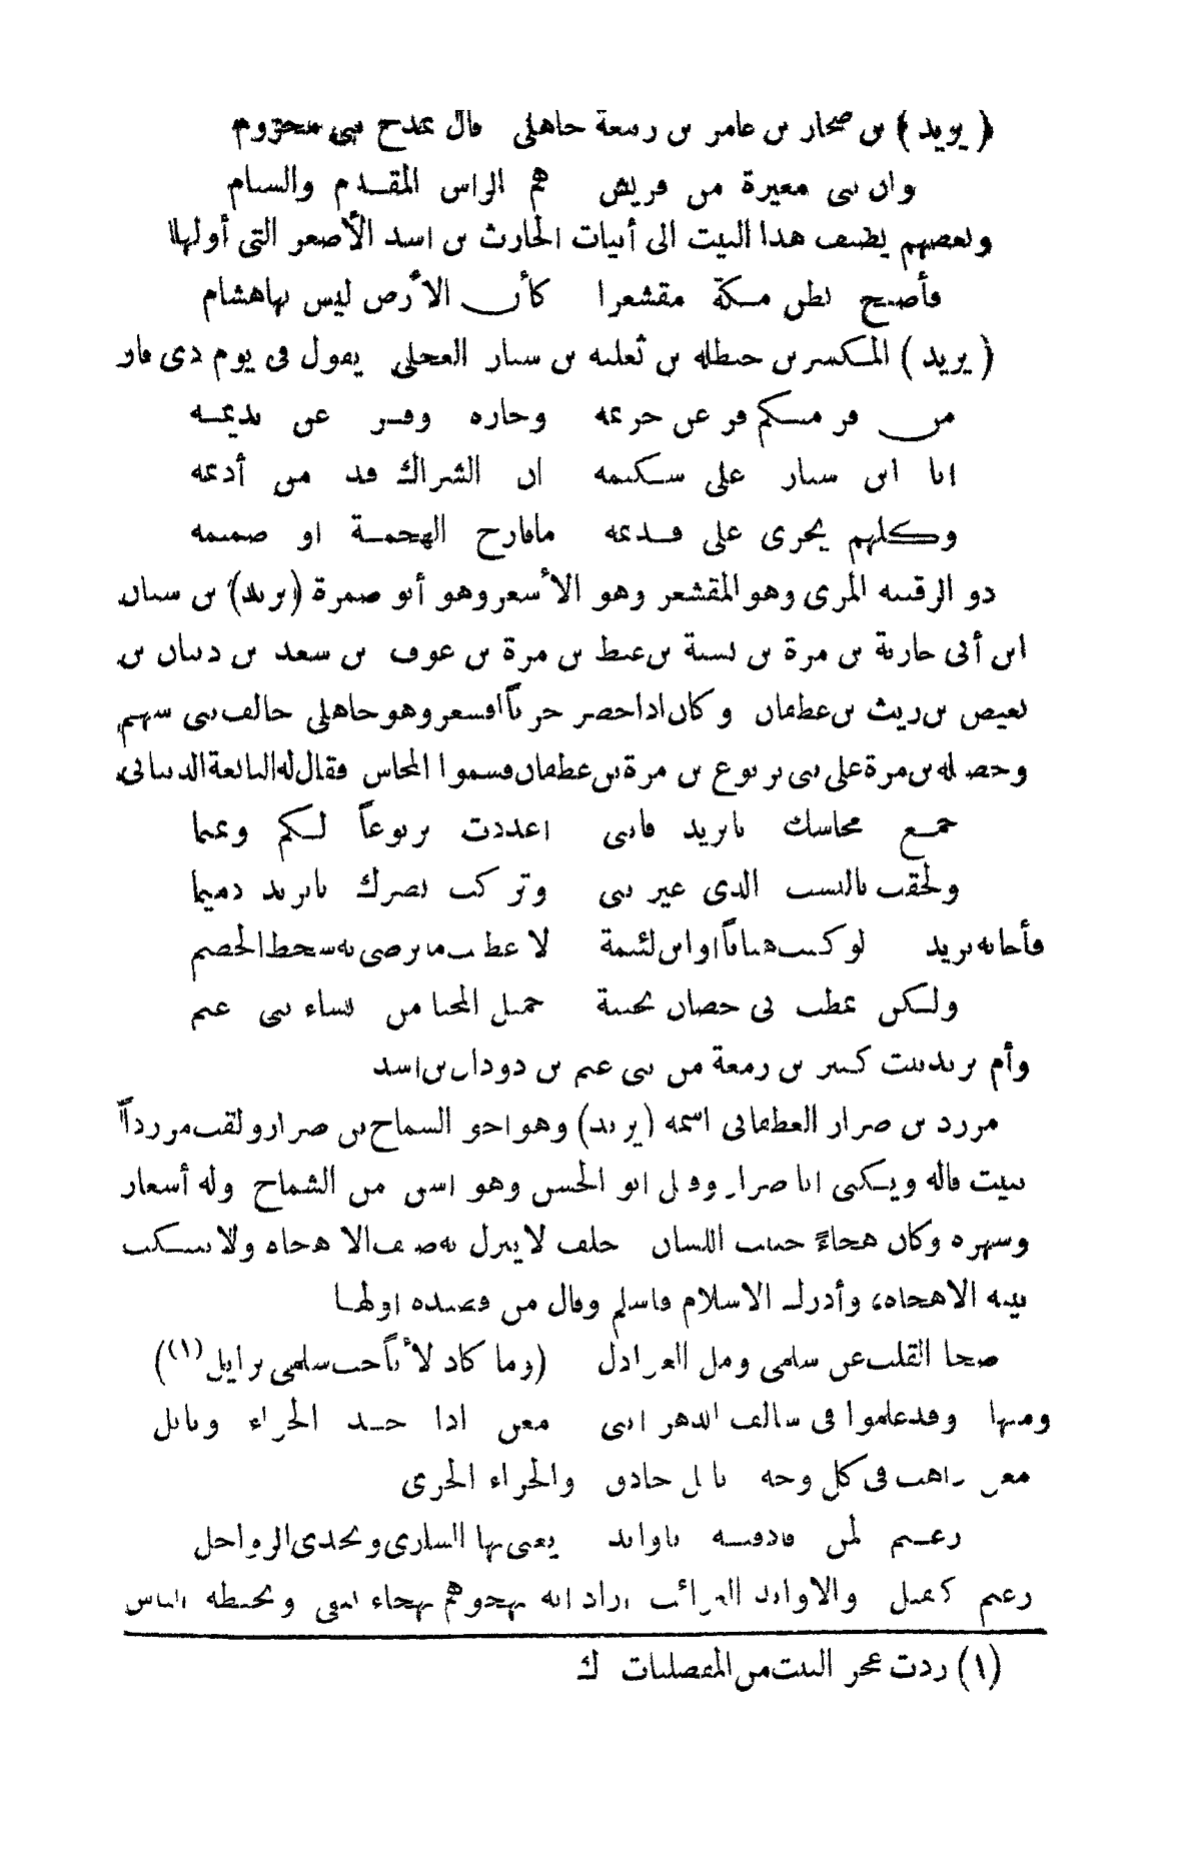 ( يزيد ) بن صحار بن عامر بن ربيعة جاهلي قال يمدح بني مخزوم
وان بني مغيرة من قريش هم الراس المقدم والسنام
وبعضهم يضيف هذا البيت الى أبيات الحارث بن اسد الأصغر التي أولها
فأصبح بطن مكة مقشعرا كأن الأرض ليس بها هشام
( يزيد ) المكسر بن حنظلة بن ثعلبة بن سيار العجلي يقول في يوم ذي قار
من فر منكم فر عن حريمه وجاره وفر عن نديمه
انا ابن سيار على شكيمه ان الشراك قد من أديمه
وكلهم يجري على قديمه ما قارح الهجمة او صميمه
ذو الرقيبة المري وهو المقشعر وهو الأشعر وهو أبو ضمرة (يزيد) بن سنان
ابن أبي حارثة بن مرة بن نشبة بن غيظ بن مرة بن عوف بن سعد بن ذبيان بن
بغيض بن ريث بن غطفان وكان اذا حضر حرباً اقشعر وهو جاهلي حالف بني سهم
وخصيلة بن مرة على بني يربوع بن مرة بن غطفان فسموا المحاش فقال له النابغة الذبياني
جمع محاشك يا يزيد فانني اعددت يربوعاً لكم وتميما
ولحقت بالنسب الذي عيرتني وتركت نصرك يا يزيد ذميما
فأجابه يزيد لو كنت هياباً او ابن لئيمة لأعطيت ما يرضى به سخط الخصم
ولكن نمت بي حصان نجيبة جميل المحيا من نساء بني غنم
وأم يزيد بنت كثير بن زمعة من بني غنم بن دودان بن اسد
مزرد بن ضرار الغطفاني اسمه (يزيد) وهو اخو الشماخ بن ضرار ولقب مزرداً
ببيت قاله ويكنى ابا ضرار وقيل ابو الحسن وهو اسن من الشماخ وله أشعار
وشهرة وكان هجاءً خبيث اللسان حلف لا ينزل به ضيف الا هجاه ولا يتنكب
بيته الا هجاه، وأدرك الاسلام فاسلم وقال من قصيدة اولها
صحا القلب عن سلمى ومل العواذل (وما كاد لأياً حب سلمى يزايل(١))
ومنها وقد علموا في سالف الدهر انني معن اذا جد الجراء ونابل
معن راهب في كل وجه نابل حاذق والجراء الجري
زعيم لمن قاذفته باوابد يغني بها الساري وتحدى الرواحل
زعيم كفيل والاوابد الغرائب اراد انه يهجوهم بهجاء يبقى وتحفظه الناس
(١) زدت عجز البيت من المفضليات ك